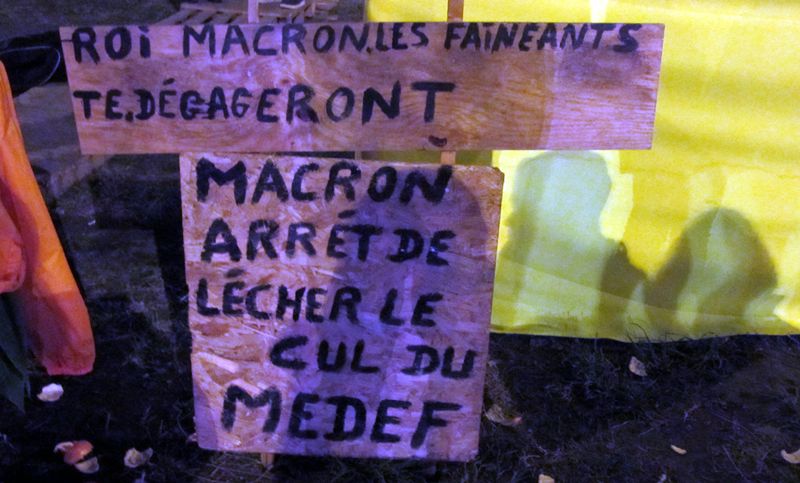 ROi MACRON.LES FAINEANTS
TE.DÉGAGERONT
MACRON
ARRÉT DE
LÉCHER LE
CUL DU
MEDEF